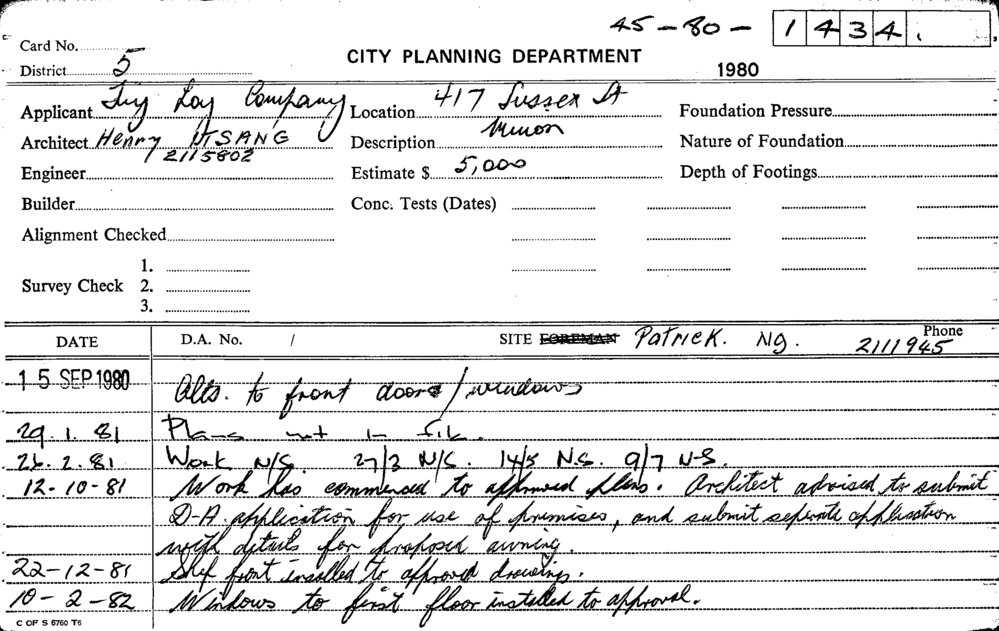 45-80-1434.
Card No.
District 5
CITY PLANNING DEPARTMENT
1980
Applicant Loy Company
Location 417 Sussex St
Foundation Pressure
Architect Henry TSANG
2115802
Description Minor
Nature of Foundation
Engineer
Estimate $ 5,000
Depth of Footings
Builder
Conc. Tests (Dates)
Alignment Checked
Survey Check 1.
2.
3.
DATE
D.A. No. /
SITE FOREMAN Patrick. Ng.
Phone
2111945
15 SEP 1980
Alts. to front doors/windows
29.1.81 Plans not in file.
26.2.81 Work N/S. 27/3 N/S. 14/5 N.S. 9/7 N-S.
12-10-81 Work has commenced to approved plans. Architect advised to submit
D-A. application for use of premises, and submit seperate application
with details for proposed awning.
22-12-81 Shop front installed to approved drawings.
10-2-82 Windows to first floor installed to approval.
C OF S 6760 T6